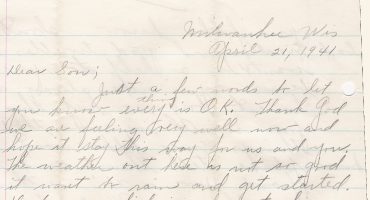 Milwaukee Wis
April 21, 1941
Dear Son;
Just a few words to let
you know every thing is O.K. Thank God
we are feeling very well now and
hope it stay this way for us and you.
The weather out here is not so good
it want to rain and get started.